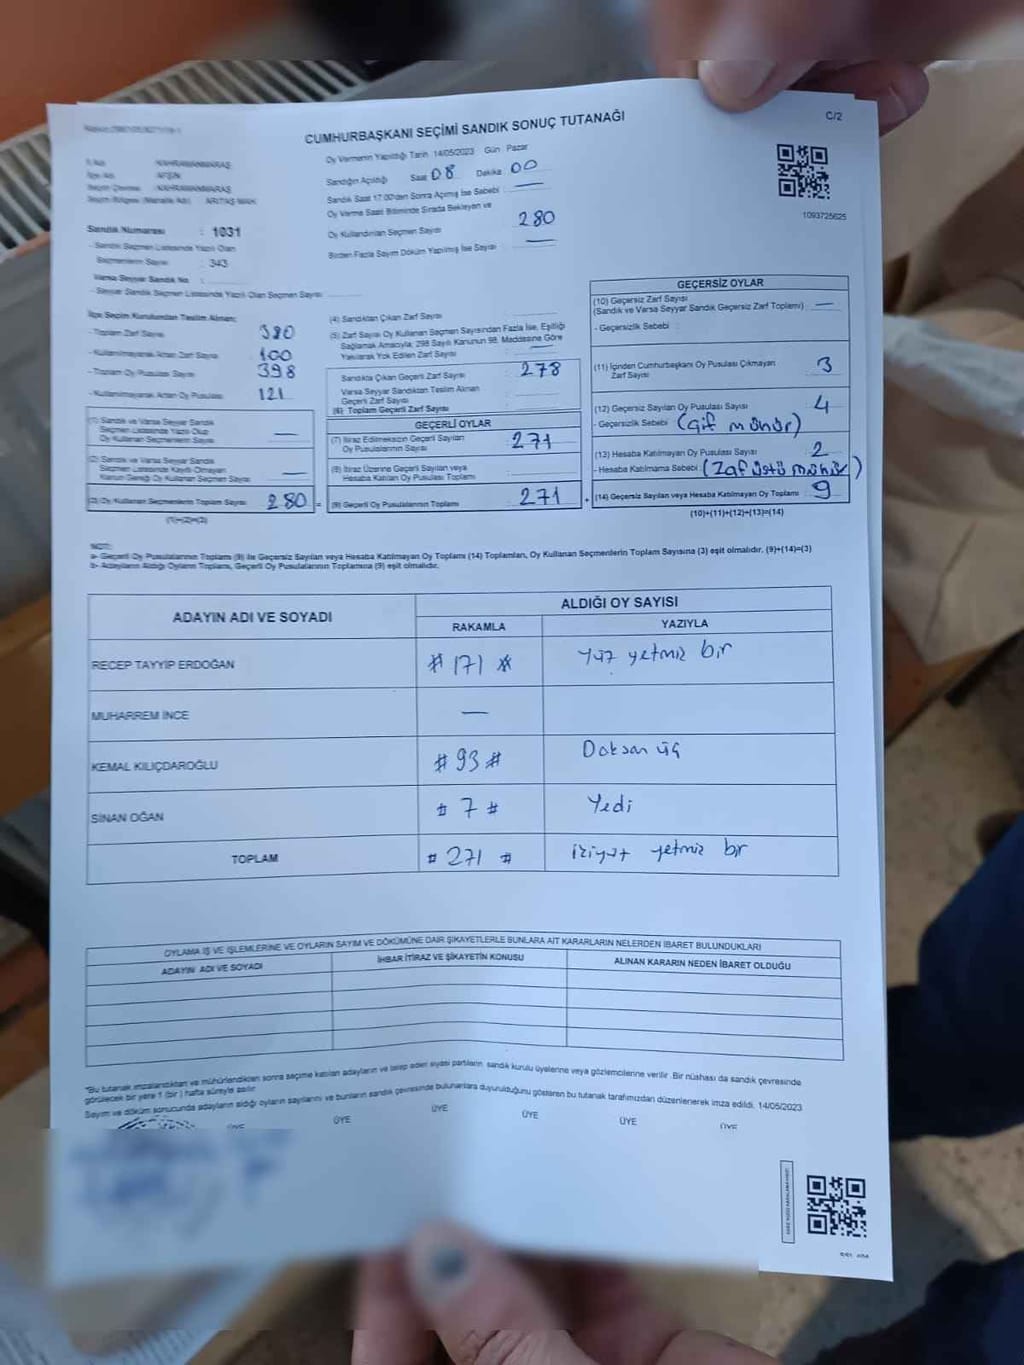 CUMHURBAŞKANI SEÇİMİ SANDIK SONUÇ TUTANAĞI
C/2
İl Adı : KAHRAMANMARAŞ
İlçe Adı : AFŞİN
Seçim Çevresi : KAHRAMANMARAŞ
Seçim Bölgesi (Mahalle Adı) ARITAŞ MAH.
Oy Vermenin Yapıldığı Tarih 14/05/2023 Gün Pazar
Sandığın Açıldığı Saat 08 Dakika 00
Sandık Saat 17.00'den Sonra Açılmış İse Sebebi : —
Oy Verme Saati Bitiminde Sırada Bekleyen ve
Oy Kullandırılan Seçmen Sayısı 280
Birden Fazla Sayım Döküm Yapılmış İse Sayısı —
1093725625
Sandık Numarası : 1031
- Sandık Seçmen Listesinde Yazılı Olan
Seçmenlerin Sayısı : 343
Varsa Seyyar Sandık No :
- Seyyar Sandık Seçmen Listesinde Yazılı Olan Seçmen Sayısı
İlçe Seçim Kurulundan Teslim Alınan:
- Toplam Zarf Sayısı 380
- Kullanılmayarak Artan Zarf Sayısı 100
- Toplam Oy Pusulası Sayısı 398
- Kullanılmayarak Artan Oy Pusulası 121
(1) Sandık ve Varsa Seyyar Sandık
Seçmen Listesinde Yazılı Olup
Oy Kullanan Seçmenlerin Sayısı —
(2) Sandık ve Varsa Seyyar Sandık
Seçmen Listesinde Kayıtlı Olmayan
Kanun Gereği Oy Kullanan Seçmenlerin Sayısı —
(3) Oy Kullanan Seçmenlerin Toplam Sayısı 280 =
(1)+(2)=(3)
(4) Sandıktan Çıkan Zarf Sayısı :
(5) Zarf Sayısı Oy Kullanan Seçmen Sayısından Fazla İse, Eşitliği
Sağlamak Amacıyla; 298 Sayılı Kanunun 98. Maddesine Göre
Yakılarak Yok Edilen Zarf Sayısı : —
Sandıkta Çıkan Geçerli Zarf Sayısı : 278
Varsa Seyyar Sandıktan Teslim Alınan
Geçerli Zarf Sayısı :
(6) Toplam Geçerli Zarf Sayısı :
GEÇERLİ OYLAR
(7) İtiraz Edilmeksizin Geçerli Sayılan
Oy Pusulalarının Sayısı : 271
(8) İtiraz Üzerine Geçerli Sayılan veya
Hesaba Katılan Oy Pusulası Toplamı :
(9) Geçerli Oy Pusulalarının Toplamı : 271 +
GEÇERSİZ OYLAR
(10) Geçersiz Zarf Sayısı
(Sandık ve Varsa Seyyar Sandık Geçersiz Zarf Toplamı) : —
- Geçersizlik Sebebi :
(11) İçinden Cumhurbaşkanı Oy Pusulası Çıkmayan
Zarf Sayısı : 3
(12) Geçersiz Sayılan Oy Pusulası Sayısı : 4
- Geçersizlik Sebebi (Çif mühür)
(13) Hesaba Katılmayan Oy Pusulası Sayısı : 2
- Hesaba Katılmama Sebebi (Zaf üstü mühür)
(14) Geçersiz Sayılan veya Hesaba Katılmayan Oy Toplamı : 9
(10)+(11)+(12)+(13)=(14)
NOT:
a- Geçerli Oy Pusulalarının Toplamı (9) ile Geçersiz Sayılan veya Hesaba Katılmayan Oy Toplamı (14) Toplamları, Oy Kullanan Seçmenlerin Toplam Sayısına (3) eşit olmalıdır. (9)+(14)=(3)
b- Adayların Aldığı Oyların Toplamı, Geçerli Oy Pusulalarının Toplamına (9) eşit olmalıdır.
ADAYIN ADI VE SOYADI
ALDIĞI OY SAYISI
RAKAMLA YAZIYLA
RECEP TAYYİP ERDOĞAN # 171 # Yüz yetmiz bir
MUHARREM İNCE —
KEMAL KILIÇDAROĞLU # 93 # Doksan üç
SİNAN OĞAN # 7 # Yedi
TOPLAM # 271 # ikiyüz yetmiz bir
OYLAMA İŞ VE İŞLEMLERİNE VE OYLARIN SAYIM VE DÖKÜMÜNE DAİR ŞİKAYETLERLE BUNLARA AİT KARARLARIN NELERDEN İBARET BULUNDUKLARI
ADAYIN ADI VE SOYADI İHBAR İTİRAZ VE ŞİKAYETİN KONUSU ALINAN KARARIN NEDEN İBARET OLDUĞU
"Bu tutanak imzalandıktan ve mühürlendikten sonra seçime katılan adayların ve talep eden siyasi partilerin sandık kurulu üyelerine veya gözlemcilerine verilir. Bir nüshası da sandık çevresinde
görülecek bir yere 1 (bir) hafta süreyle asılır.
Sayım ve döküm sonucunda adayların aldığı oyların sayılarını ve bunların sandık çevresinde bulunanlara duyurulduğunu gösteren bu tutanak tarafımızdan düzenlenerek imza edildi. 14/05/2023
ÜYE ÜYE ÜYE ÜYE ÜYE ÜYE